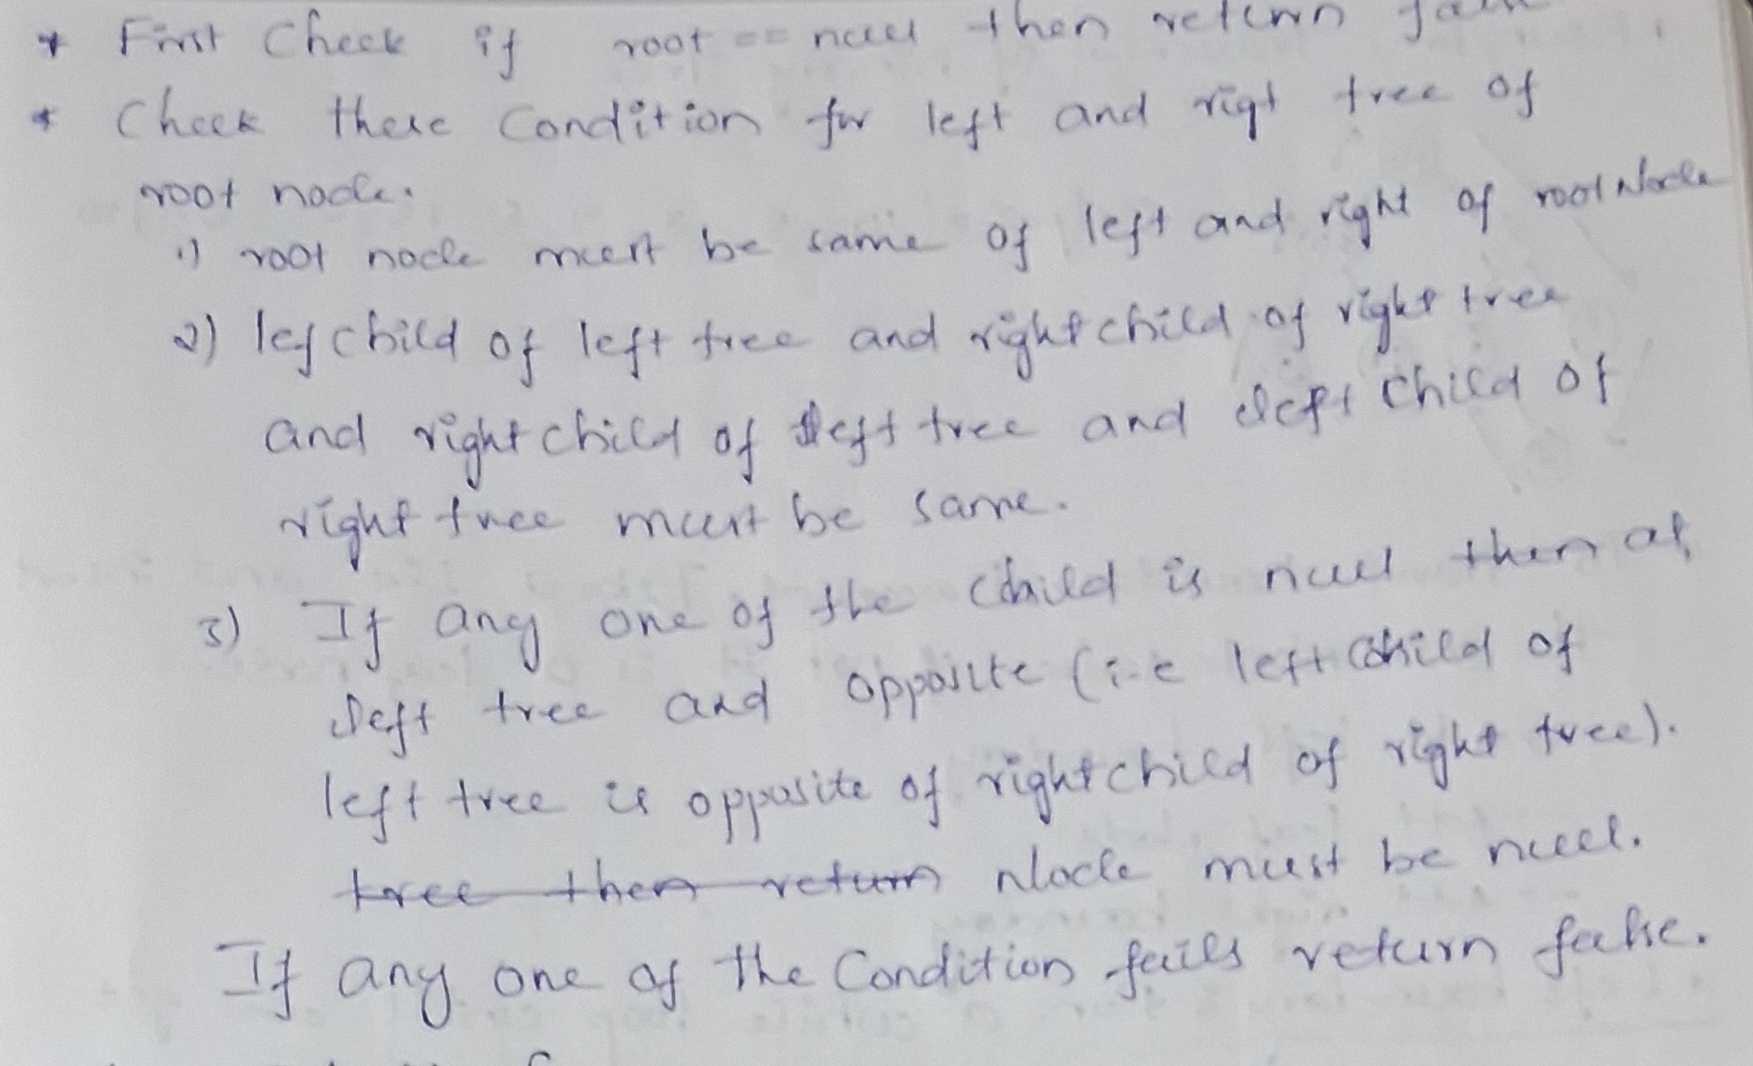 * First Check if root == null then return
* Check these Condition for left and rigt tree of
root node.
1) root node must be same of left and right of root Node
2) lef child of left tree and right child of right tree
and right child of left tree and left child of
right tree must be same.
3) If any one of the child is null then of
left tree and opposite (i.e left child of
left tree is opposite of right child of right tree).
tree then return Node must be null.
If any one of the Condition fails return false.